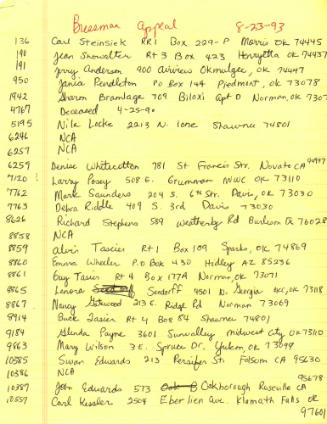 Bressman Appeal 8-23-93
136 Carl Steinsiek RR1 Box 229-P Morris OK 74445
190 Jean Showalter Rt 3 Box 423 Henryetta OK 74437
191 Jerry Anderson 900 Airview Okmulgee, OK 74447
950 Janice Pendleton PO Box 144 Piedmont, OK 73078
1942 Sharon Bramlage 709 Biloxi Apt D Norman, OK 730
4767 Deceased 4-25-90
5195 Nila Locke 2213 N. Ione Shawnee 74801
6246 NCA
6257 NCA
6259 Denise Whitecotten 781 St Francis Str. Novato CA 94947
7120 Larry Posey 508 E. Grumman MWC OK 73110
7762 Mark Saunders 204 S. 6th Str. Davis, OK 73030
7763 Debra Riddle 409 S. 3rd Davis 73030
8626 Richard Stephens 589 Weatherby Rd Burleson Tx 76028
8858 NCA
8859 Alvis Tasier Rt 1 Box 109 Sparks, OK, 74869
8860 Emma Wheeler P.O Box 430 Higley AZ 85236
8861 Guy Tasier Rt 4 Box 177A Norman OK 73071
8865 Lenora Senderff 4501 N. Georgia OKC, OK 73118
8867 Nancy 213 E. Ridge Rd Norman 73069
8914 Buck Tasier Rt 4 Box 84 Shawnee 74801
9184 Glenda Payne 3601 Sunvalley Midwest City OK 73110
9863 Mary Wilson 3 E. Spruce Dr. Yukon, OK 73099
10385 Susan Edwards 213 Persifer St. Folsom CA 95630
10386 NCA
10387 John Edwards 573 Oakborough Roseville CA 95678
10557 Carl Kessler 2504 Eberlien Ave. Klamath Falls OR 97601